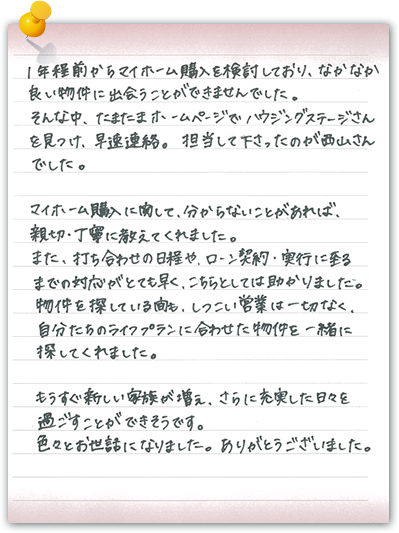 1年程前からマイホーム購入を検討しており、なかなか
良い物件に出会うことができませんでした。
そんな中、たまたまホームページでハウジングステージさん
を見つけ、早速連絡。担当して下さったのが西山さん
でした。
マイホーム購入に関して、分からないことがあれば、
親切・丁寧に教えてくれました。
また、打ち合わせの日程や、ローン契約・実行に至る
までの対応がとても早く、こちらとしては助かりました。
物件を探している間も、しつこい営業は一切なく、
自分たちのライフプランに合わせた物件を一緒に
探してくれました。
もうすぐ新しい家族が増え、さらに充実した日々を
過ごすことができそうです。
色々とお世話になりました。ありがとうございました。